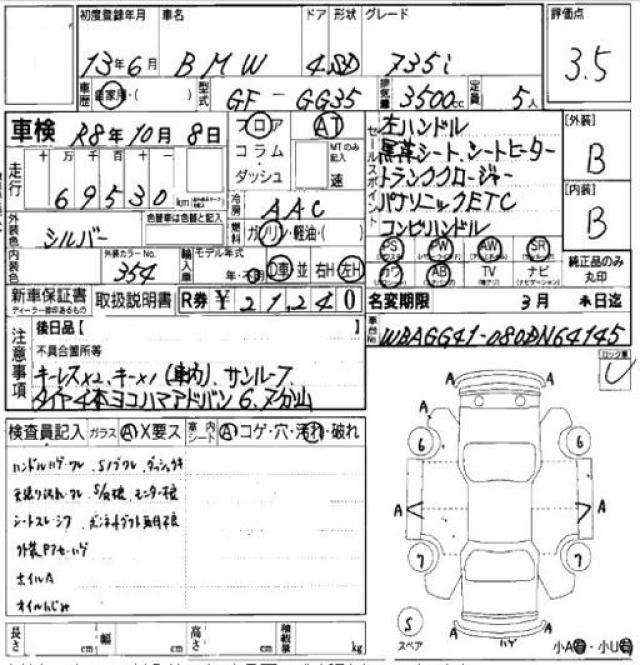 初度登録年月 車名 ドア 形状 グレード 評価点
13年6月 BMW 4 SD 735i 3.5
車歴 自家用・( ) 型式 GF-GG35 排気量 3500cc 定員 5人
車検 R8年10月8日 フロア AT
コラム MTのみ記入
ダッシュ 速
セールスポイント 左ハンドル
黒革シート、シートヒーター
トランククロージャー
パナソニックETC
コンビハンドル
[外装] B
[内装] B
走行 十万千百十一
69530 km
冷房 AAC
外装色 シルバー 色替車は色替と記入
燃料 ガソリン・軽油・( )
内装色 外装カラーNo. 354
輸入車 モデル年式 年・不明 D車 並 右H 左H
PS PW AW SR
カワ AB TV ナビ
純正品のみ丸印
新車保証書 取扱説明書 R券 ¥21,240
ディーラー捺印あるもの
名変期限 3月末日迄
車台No WBAGG41-080DN64145
注意事項
後日品【 】
不具合箇所等
キーレス×2、キー×1(車内)、サンルーフ
タイヤ4本ヨコハマアドバン 6、7分山
検査員記入 ガラス A X要ス 室内シート A コゲ・穴・汚れ・破れ
外装Pアセ・ハゲ
ホイルA
オイルにじみ
A A
6 6
A A A A
7 7
S
スペア
ハゲ
小A・小U
長さ cm 幅 cm 高さ cm 積載量 kg